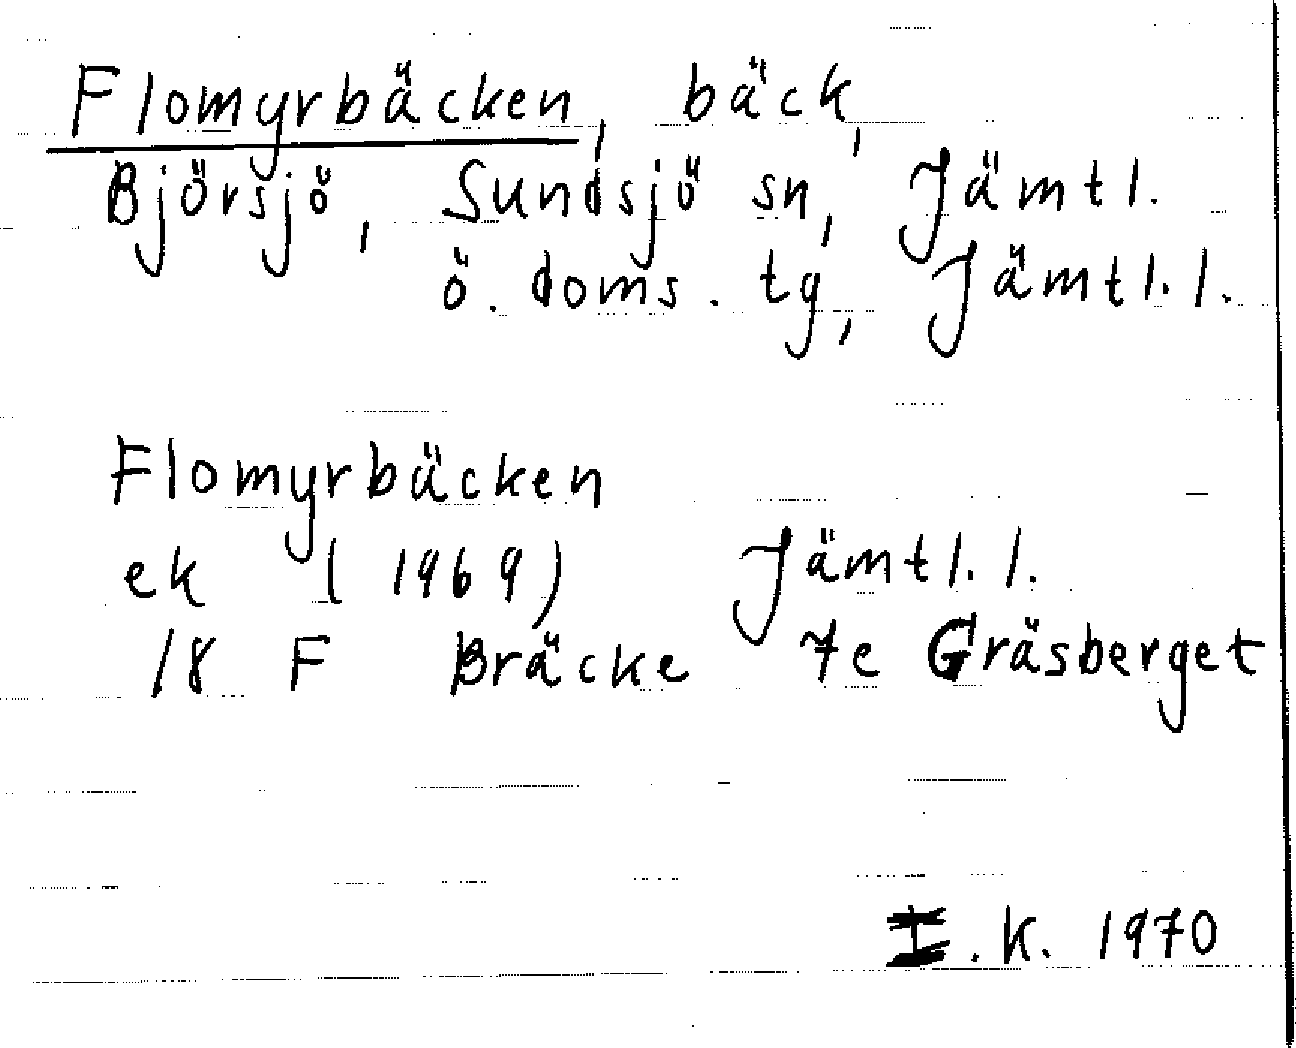 Flomyrbäcken, bäck,
Björsjö, Sundsjö sn, Jämtl.
ö. doms. tg, Jämtl. l.
Flomyrbäcken
ek (1969) Jämtl. l.
18 F Bräcke 7e Gräsberget
I.K. 1970